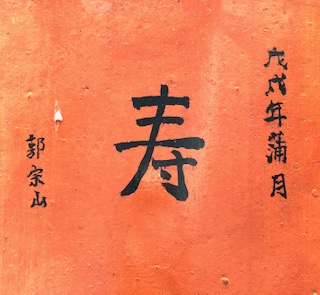 戊戌年蒲月
寿
郭宗山